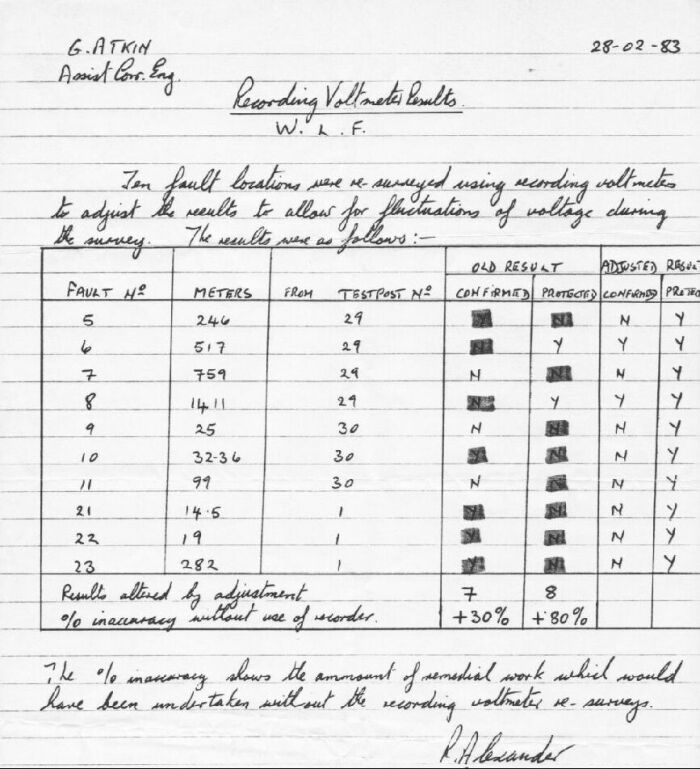 G. ATKIN 28-02-83
Assist Corr. Eng.
Recording Voltmeter Results.
W. L. F.
Ten fault locations were re-surveyed using recording voltmeters
to adjust the results to allow for fluctuations of voltage during
the survey. The results were as follows:-
OLD RESULT ADJUSTED RESUL
FAULT Nº METERS FROM TESTPOST Nº CONFIRMED PROTECTED CONFIRMED PROTEC
5 246 29 Y N N Y
6 517 29 N Y Y Y
7 759 29 N N N Y
8 1411 29 N Y Y Y
9 25 30 N N N Y
10 32-36 30 Y N N Y
11 99 30 N N N Y
21 14.5 1 Y N N Y
22 19 1 Y N N Y
23 282 1 Y N N Y
Results altered by adjustment 7 8
% inaccuracy without use of recorder. +30% +80%
The % inaccuracy shows the ammount of remedial work which would
have been undertaken without the recording voltmeter re-surveys.
R. Alexander